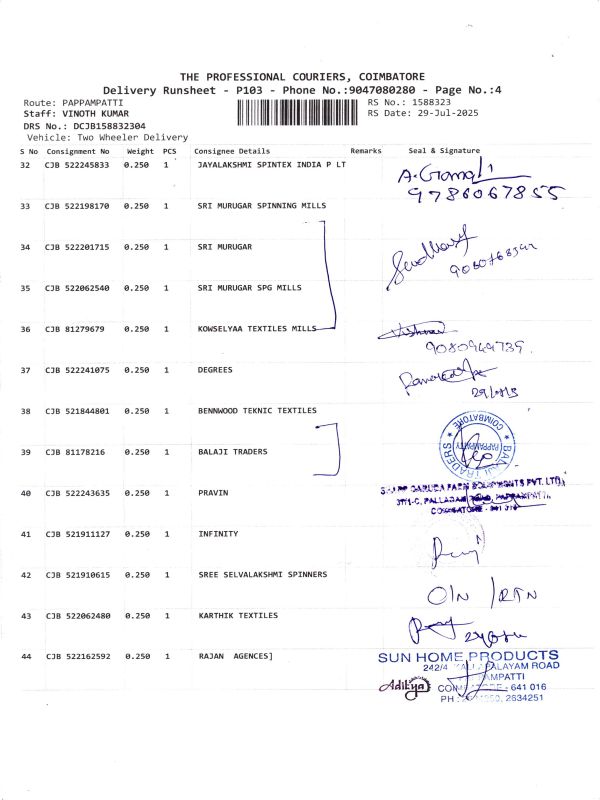 THE PROFESSIONAL COURIERS, COIMBATORE
Delivery Runsheet - P103 - Phone No.:9047080280 - Page No.:4
Route: PAPPAMPATTI RS No.: 1588323
Staff: VINOTH KUMAR RS Date: 29-Jul-2025
DRS No.: DCJB158832304
Vehicle: Two Wheeler Delivery
S No Consignment No Weight PCS Consignee Details Remarks Seal & Signature
32 CJB 522245833 0.250 1 JAYALAKSHMI SPINTEX INDIA P LT
9786067855
33 CJB 522198170 0.250 1 SRI MURUGAR SPINNING MILLS
34 CJB 522201715 0.250 1 SRI MURUGAR
35 CJB 522062540 0.250 1 SRI MURUGAR SPG MILLS
36 CJB 81279679 0.250 1 KOWSELYAA TEXTILES MILLS
9080949739
37 CJB 522241075 0.250 1 DEGREES
38 CJB 521844801 0.250 1 BENNWOOD TEKNIC TEXTILES
COIMBATORE
PAPPAMPATTY
BALAJI TRADERS
39 CJB 81178216 0.250 1 BALAJI TRADERS
40 CJB 522243635 0.250 1 PRAVIN
PVT. LTD.,
41 CJB 521911127 0.250 1 INFINITY
42 CJB 521910615 0.250 1 SREE SELVALAKSHMI SPINNERS
O/N /RTN
43 CJB 522062480 0.250 1 KARTHIK TEXTILES
44 CJB 522162592 0.250 1 RAJAN AGENCES]
SUN HOME PRODUCTS
242/4 PALAYAM ROAD
Adikya - 641 016
PH 2634251